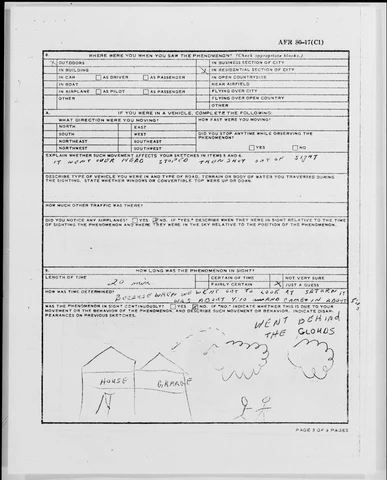 AFR 80-17(C1)
WHERE WERE YOU WHEN YOU SAW THE PHENOMENON? (Check appropriate blocks.)
OUTDOORS IN BUSINESS SECTION OF CITY
IN BUILDING X IN RESIDENTIAL SECTION OF CITY
IN CAR AS DRIVER AS PASSENGER IN OPEN COUNTRYSIDE
IN BOAT NEAR AIRFIELD
IN AIRPLANE AS PILOT AS PASSENGER FLYING OVER CITY
OTHER FLYING OVER OPEN COUNTRY
OTHER
IF YOU WERE IN A VEHICLE, COMPLETE THE FOLLOWING:
WHAT DIRECTION WERE YOU MOVING? HOW FAST WERE YOU MOVING?
NORTH EAST
SOUTH WEST DID YOU STOP ANYTIME WHILE OBSERVING THE PHENOMENON?
NORTHEAST SOUTHEAST
NORTHWEST SOUTHWEST YES NO
EXPLAIN WHETHER SUCH MOVEMENT AFFECTS YOUR SKETCHES IN ITEMS 5 AND 6.
IT WENT OVER HEAD STOPED THEN SHOT OUT OF SIGHT
DESCRIBE TYPE OF VEHICLE YOU WERE IN AND TYPE OF ROAD, TERRAIN OR BODY OF WATER YOU TRAVERSED DURING
THE SIGHTING. STATE WHETHER WINDOWS OR CONVERTIBLE TOP WERE UP OR DOWN.
HOW MUCH OTHER TRAFFIC WAS THERE?
DID YOU NOTICE ANY AIRPLANES? YES NO. IF "YES," DESCRIBE WHEN THEY WERE IN SIGHT RELATIVE TO THE TIME
OF SIGHTING THE PHENOMENON AND WHERE THEY WERE IN THE SKY RELATIVE TO THE POSITION OF THE PHENOMENON.
HOW LONG WAS THE PHENOMENON IN SIGHT?
LENGTH OF TIME CERTAIN OF TIME NOT VERY SURE
20 min FAIRLY CERTAIN X JUST A GUESS
HOW WAS TIME DETERMINED?
BECAUSE WHEN WE WENT OUT TO LOOK AT SATURN IT
WAS ABOUT AND CAME IN ABOUT
WAS THE PHENOMENON IN SIGHT CONTINUOUSLY? YES NO. IF "NO," INDICATE WHETHER THIS IS DUE TO YOUR
MOVEMENT OR THE BEHAVIOR OF THE PHENOMENON, AND DESCRIBE SUCH MOVEMENT OR BEHAVIOR. INDICATE DISAP-
PEARANCES ON PREVIOUS SKETCHES.
WENT BEHIND
THE CLOUDS
HOUSE GARAGE
PAGE 3 OF 9 PAGES